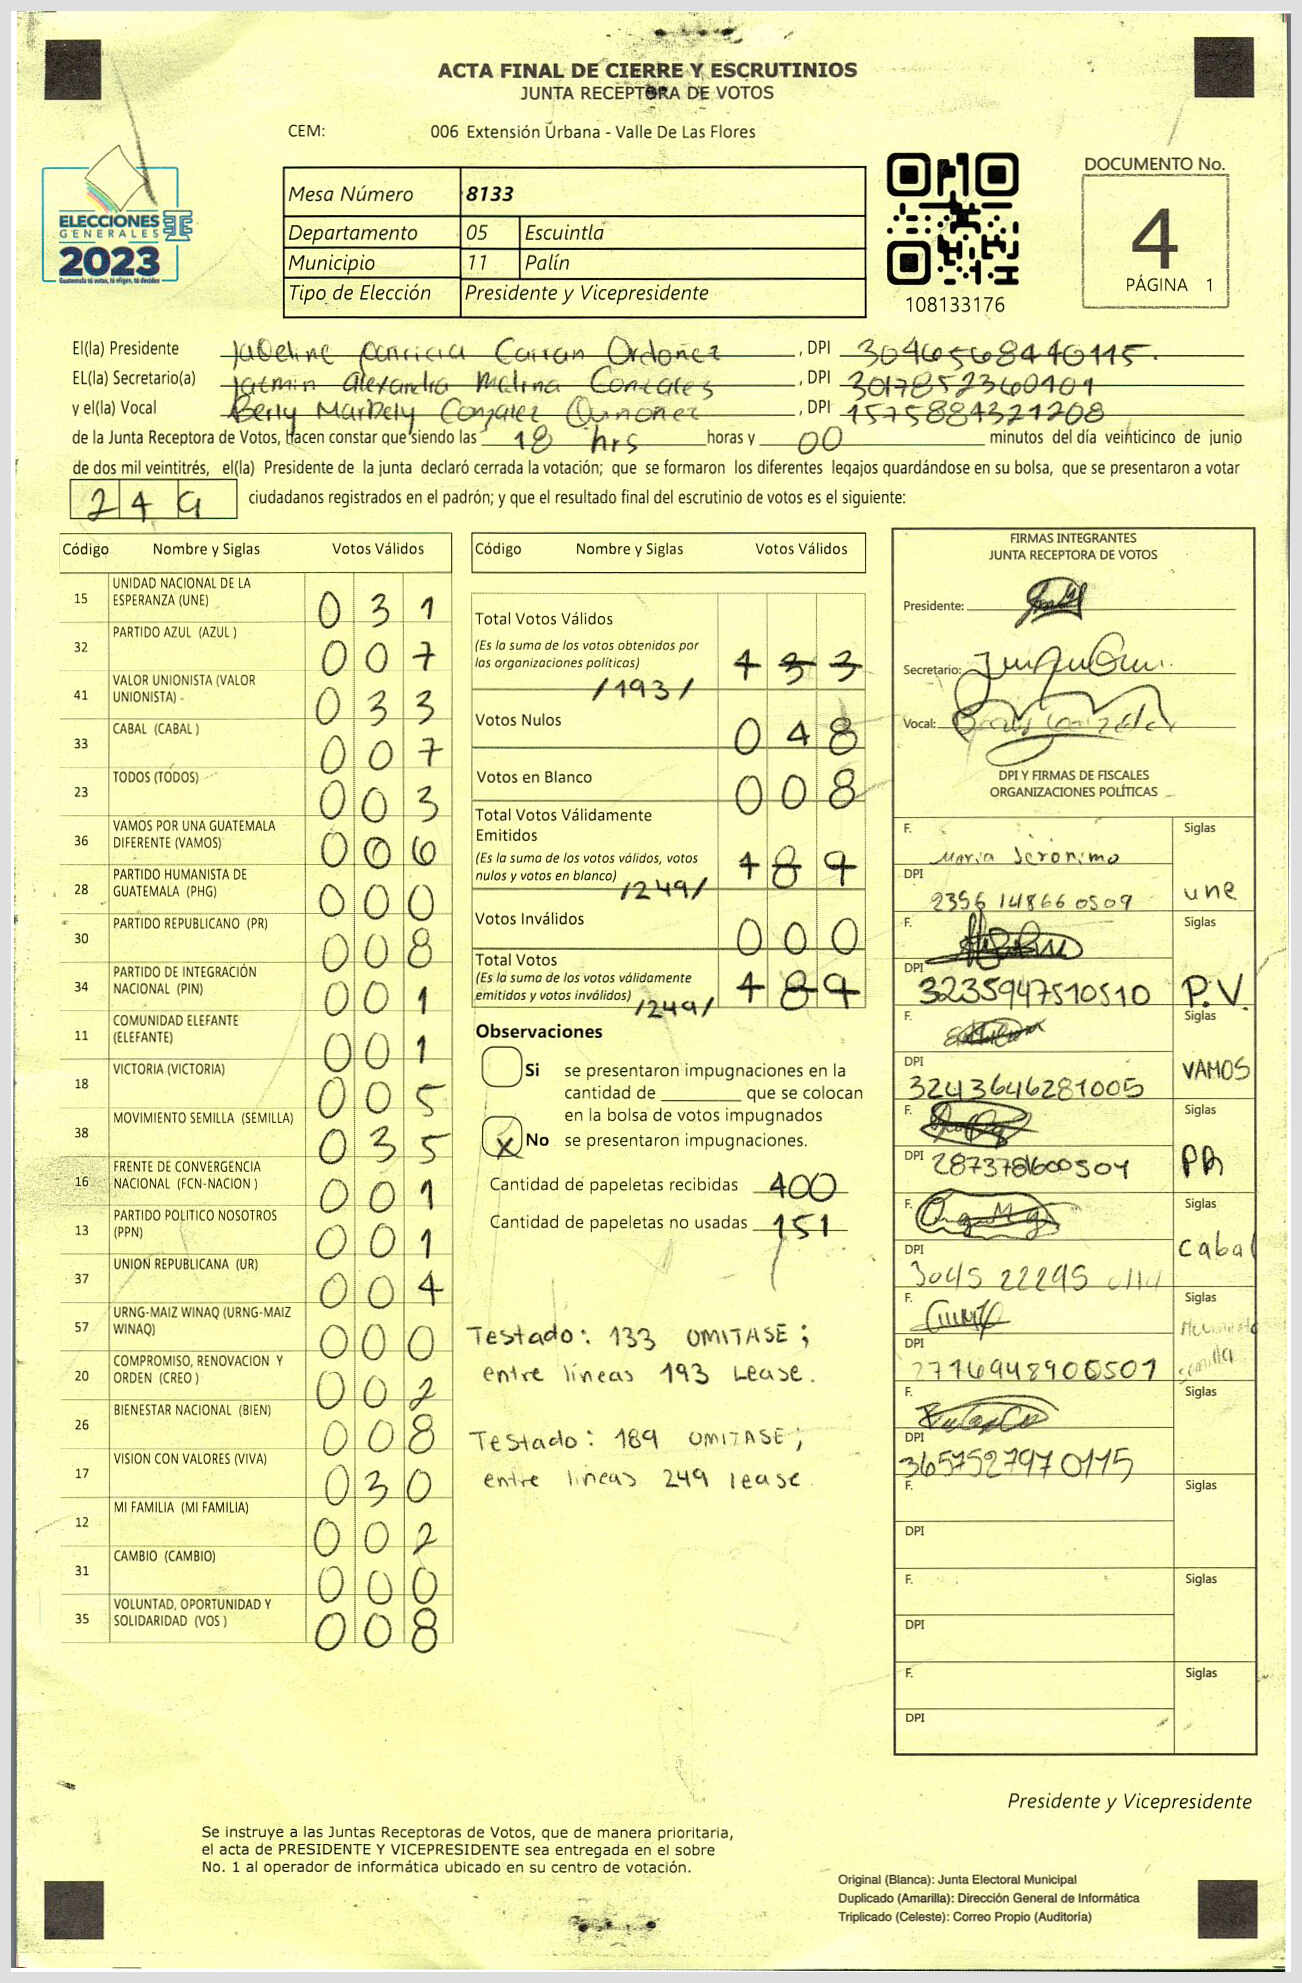 ACTA FINAL DE CIERRE Y ESCRUTINIOS
JUNTA RECEPTORA DE VOTOS
CEM: 006 Extensión Urbana - Valle De Las Flores
ELECCIONES
GENERALES
2023
Guatemala tú votas, tú eliges, tú decides
Mesa Número 8133
Departamento 05 Escuintla
Municipio 11 Palín
Tipo de Elección Presidente y Vicepresidente
108133176
DOCUMENTO No.
4
PÁGINA 1
El(la) Presidente Ordoñez , DPI
EL(la) Secretario(a) Alexandra Gonzales , DPI
y el(la) Vocal Gonzalez Quiñonez , DPI 1575884321208
de la Junta Receptora de Votos, hacen constar que siendo las 18 hrs horas y 00 minutos del día veinticinco de junio
de dos mil veintitrés, el(la) Presidente de la junta declaró cerrada la votación; que se formaron los diferentes legajos guardándose en su bolsa, que se presentaron a votar
249 ciudadanos registrados en el padrón; y que el resultado final del escrutinio de votos es el siguiente:
Código Nombre y Siglas Votos Válidos
15 UNIDAD NACIONAL DE LA ESPERANZA (UNE) 031
32 PARTIDO AZUL (AZUL ) 007
41 VALOR UNIONISTA (VALOR UNIONISTA) 033
33 CABAL (CABAL ) 007
23 TODOS (TODOS) 003
36 VAMOS POR UNA GUATEMALA DIFERENTE (VAMOS) 006
28 PARTIDO HUMANISTA DE GUATEMALA (PHG) 000
30 PARTIDO REPUBLICANO (PR) 008
34 PARTIDO DE INTEGRACIÓN NACIONAL (PIN) 001
11 COMUNIDAD ELEFANTE (ELEFANTE) 001
18 VICTORIA (VICTORIA) 005
38 MOVIMIENTO SEMILLA (SEMILLA) 035
16 FRENTE DE CONVERGENCIA NACIONAL (FCN-NACION ) 001
13 PARTIDO POLITICO NOSOTROS (PPN) 001
37 UNION REPUBLICANA (UR) 004
57 URNG-MAIZ WINAQ (URNG-MAIZ WINAQ) 000
20 COMPROMISO, RENOVACION Y ORDEN (CREO ) 002
26 BIENESTAR NACIONAL (BIEN) 008
17 VISION CON VALORES (VIVA) 030
12 MI FAMILIA (MI FAMILIA) 002
31 CAMBIO (CAMBIO) 000
35 VOLUNTAD, OPORTUNIDAD Y SOLIDARIDAD (VOS ) 008
Código Nombre y Siglas Votos Válidos
Total Votos Válidos
(Es la suma de los votos obtenidos por
las organizaciones políticas) 133
/193/
Votos Nulos 048
Votos en Blanco 008
Total Votos Válidamente
Emitidos
(Es la suma de los votos válidos, votos
nulos y votos en blanco) 189
/249/
Votos Inválidos 000
Total Votos
(Es la suma de los votos válidamente
emitidos y votos inválidos) 189
/249/
Observaciones
Si se presentaron impugnaciones en la
cantidad de ________ que se colocan
en la bolsa de votos impugnados
X No se presentaron impugnaciones.
Cantidad de papeletas recibidas 400
Cantidad de papeletas no usadas 151
Testado: 133 OMITASE;
entre líneas 193 Lease.
Testado: 189 OMITASE;
entre líneas 249 lease.
FIRMAS INTEGRANTES
JUNTA RECEPTORA DE VOTOS
Presidente:
Secretario:
Vocal:
DPI Y FIRMAS DE FISCALES
ORGANIZACIONES POLÍTICAS
F. Maria Jerónimo Siglas
DPI 2356 14866 0509 une
F. Siglas
DPI 3235947510510 P.V.
F. Siglas
DPI 3243646281005 VAMOS
F. Siglas
DPI 2873781600504 PR
F. Siglas
DPI 3045 22295 Cabal
F. Siglas
DPI 2776948900501 semilla
F. Siglas
DPI 3657527970115
F. Siglas
DPI
F. Siglas
DPI
F. Siglas
DPI
Presidente y Vicepresidente
Se instruye a las Juntas Receptoras de Votos, que de manera prioritaria,
el acta de PRESIDENTE Y VICEPRESIDENTE sea entregada en el sobre
No. 1 al operador de informática ubicado en su centro de votación.
Original (Blanca): Junta Electoral Municipal
Duplicado (Amarilla): Dirección General de Informática
Triplicado (Celeste): Correo Propio (Auditoría)